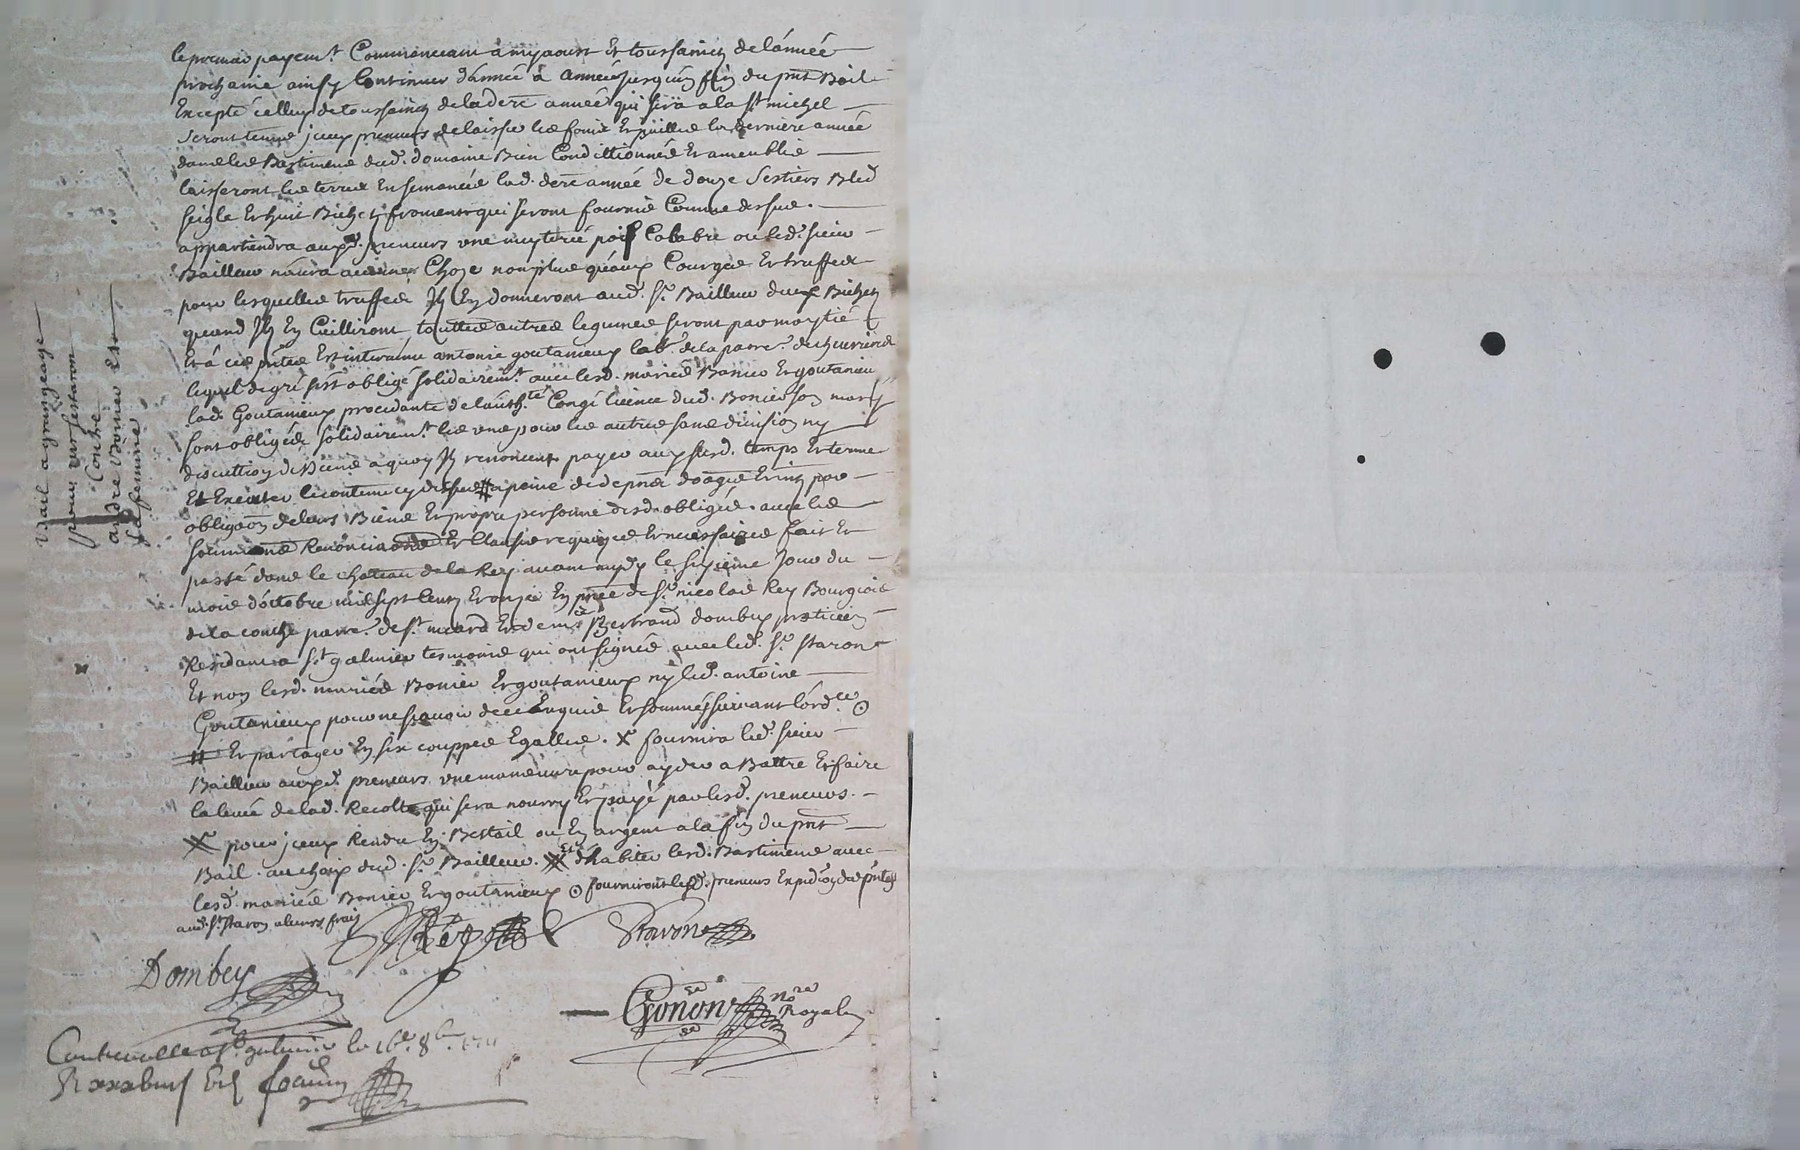 le premier payem.t Commenceant a my aoust Et toussainctz de lánnée
prochaine ainsy Continuer dánnée à année jusqu'en fin du pnt Bail
Excepté celluy de toussainctz de lad dere année qui sera a la st michel
Seront tenus jceux preneurs de laisser les foins Et pailles la dernière année
dans les Bastimens dud. domaine Bien Condittionnés Et ameublis
laisseront les terres Ensemancés lad. dere année de douze Sestiers Bled
seigle Et huit Bichetz froment qui seront fournis Comme dessus.
appartiendra auxd. preneurs une meyterée pois Calabre ou led. sieur
Bailleur náura aucune Choze non plus quáux Courges Et truffes
pour lesquelles truffes Ilz En donneront aud. Sr. Bailleur deux Bichetz
quand Ilz En Cuilliront, touttes autres legumes seront par moytié
Et à ces pntes Est intervenu antoine goutanieux lab.r de la parr.e de chevrieres
lequel de gré s'est obligé solidairem.t avec lesd. mariés Bonier Et goutanieux
lad. Goutanieux procédante de láuth.te Congé licence dud. Bonier son mary
sont obligés solidairem.t les uns pour les autres sans division ny
discution de Biens a quoy Ilz renoncent payer aux susd. temps Et terme
Et Executer le contenu cy dessus # a peine de depens domages Et intz par
obligaon de leurs Biens Et propre personne desd. obligés. avec les
soumissions Renonciaons Et Clauses requizes Et necessaires fait Et
passé dans le chateau de la Rey avant midy le sixieme Jour du
mois dóctobre mil sept Centz Et onze En pnce de Sr. nicolas Rey Bourgeois
de la conche parr.e de St. medard Et de me Bertrand dombey praticien
Residant a St. galmier tesmoins qui ont signés avec led. Sr. staron
Et non lesd. mariés Bonier Et goutanieux ny led. antoine
Goutanieux pour ne sçavoir de ce Enquis Et sommés suivant lórd.ce ⊙
# Et partager En six couppes Egalles. X fournira led. sieur
Bailleur auxd. preneurs une manoeuvre pour ayder a Battre Et faire
la levée de lad. Recolte qui sera nourry Et payé par lesd. preneurs.
X pour jceux Rendre En Bestail ou En argent a la fin du pnt
Bail. au choix dud. Sr. Bailleur. X dhabiter lesd. Bastimens avec
lesd. mariés Bonier Et goutanieux ⊙ fourniront lesd. preneurs Expédion des pntes
aud. Sr. staron a leurs frais
Rey
Staron
Dombey
Gonon
no.re
Royal
Contrerolle a St. galmier le 16e. 8b.
Bail a grangeage
pour sieur staron
Contre
andre Bonier Et
sa femme